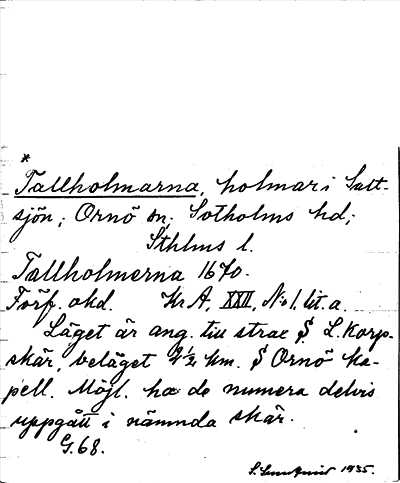 *
Tallholmarna, holmar i Salt-
sjön; Ornö sn. Sotholms hd;
Sthlms l.
Tallholmerna 1670.
Förf. okd. Kr A, XXII, No 1. lit. a.
Läget är ang. till strax S L. Korp-
skär, beläget 2 1/2 km. S Ornö ka-
pell. Möjl. ha de numera delvis
uppgått i nämnda skär.
G. 68.
1935.